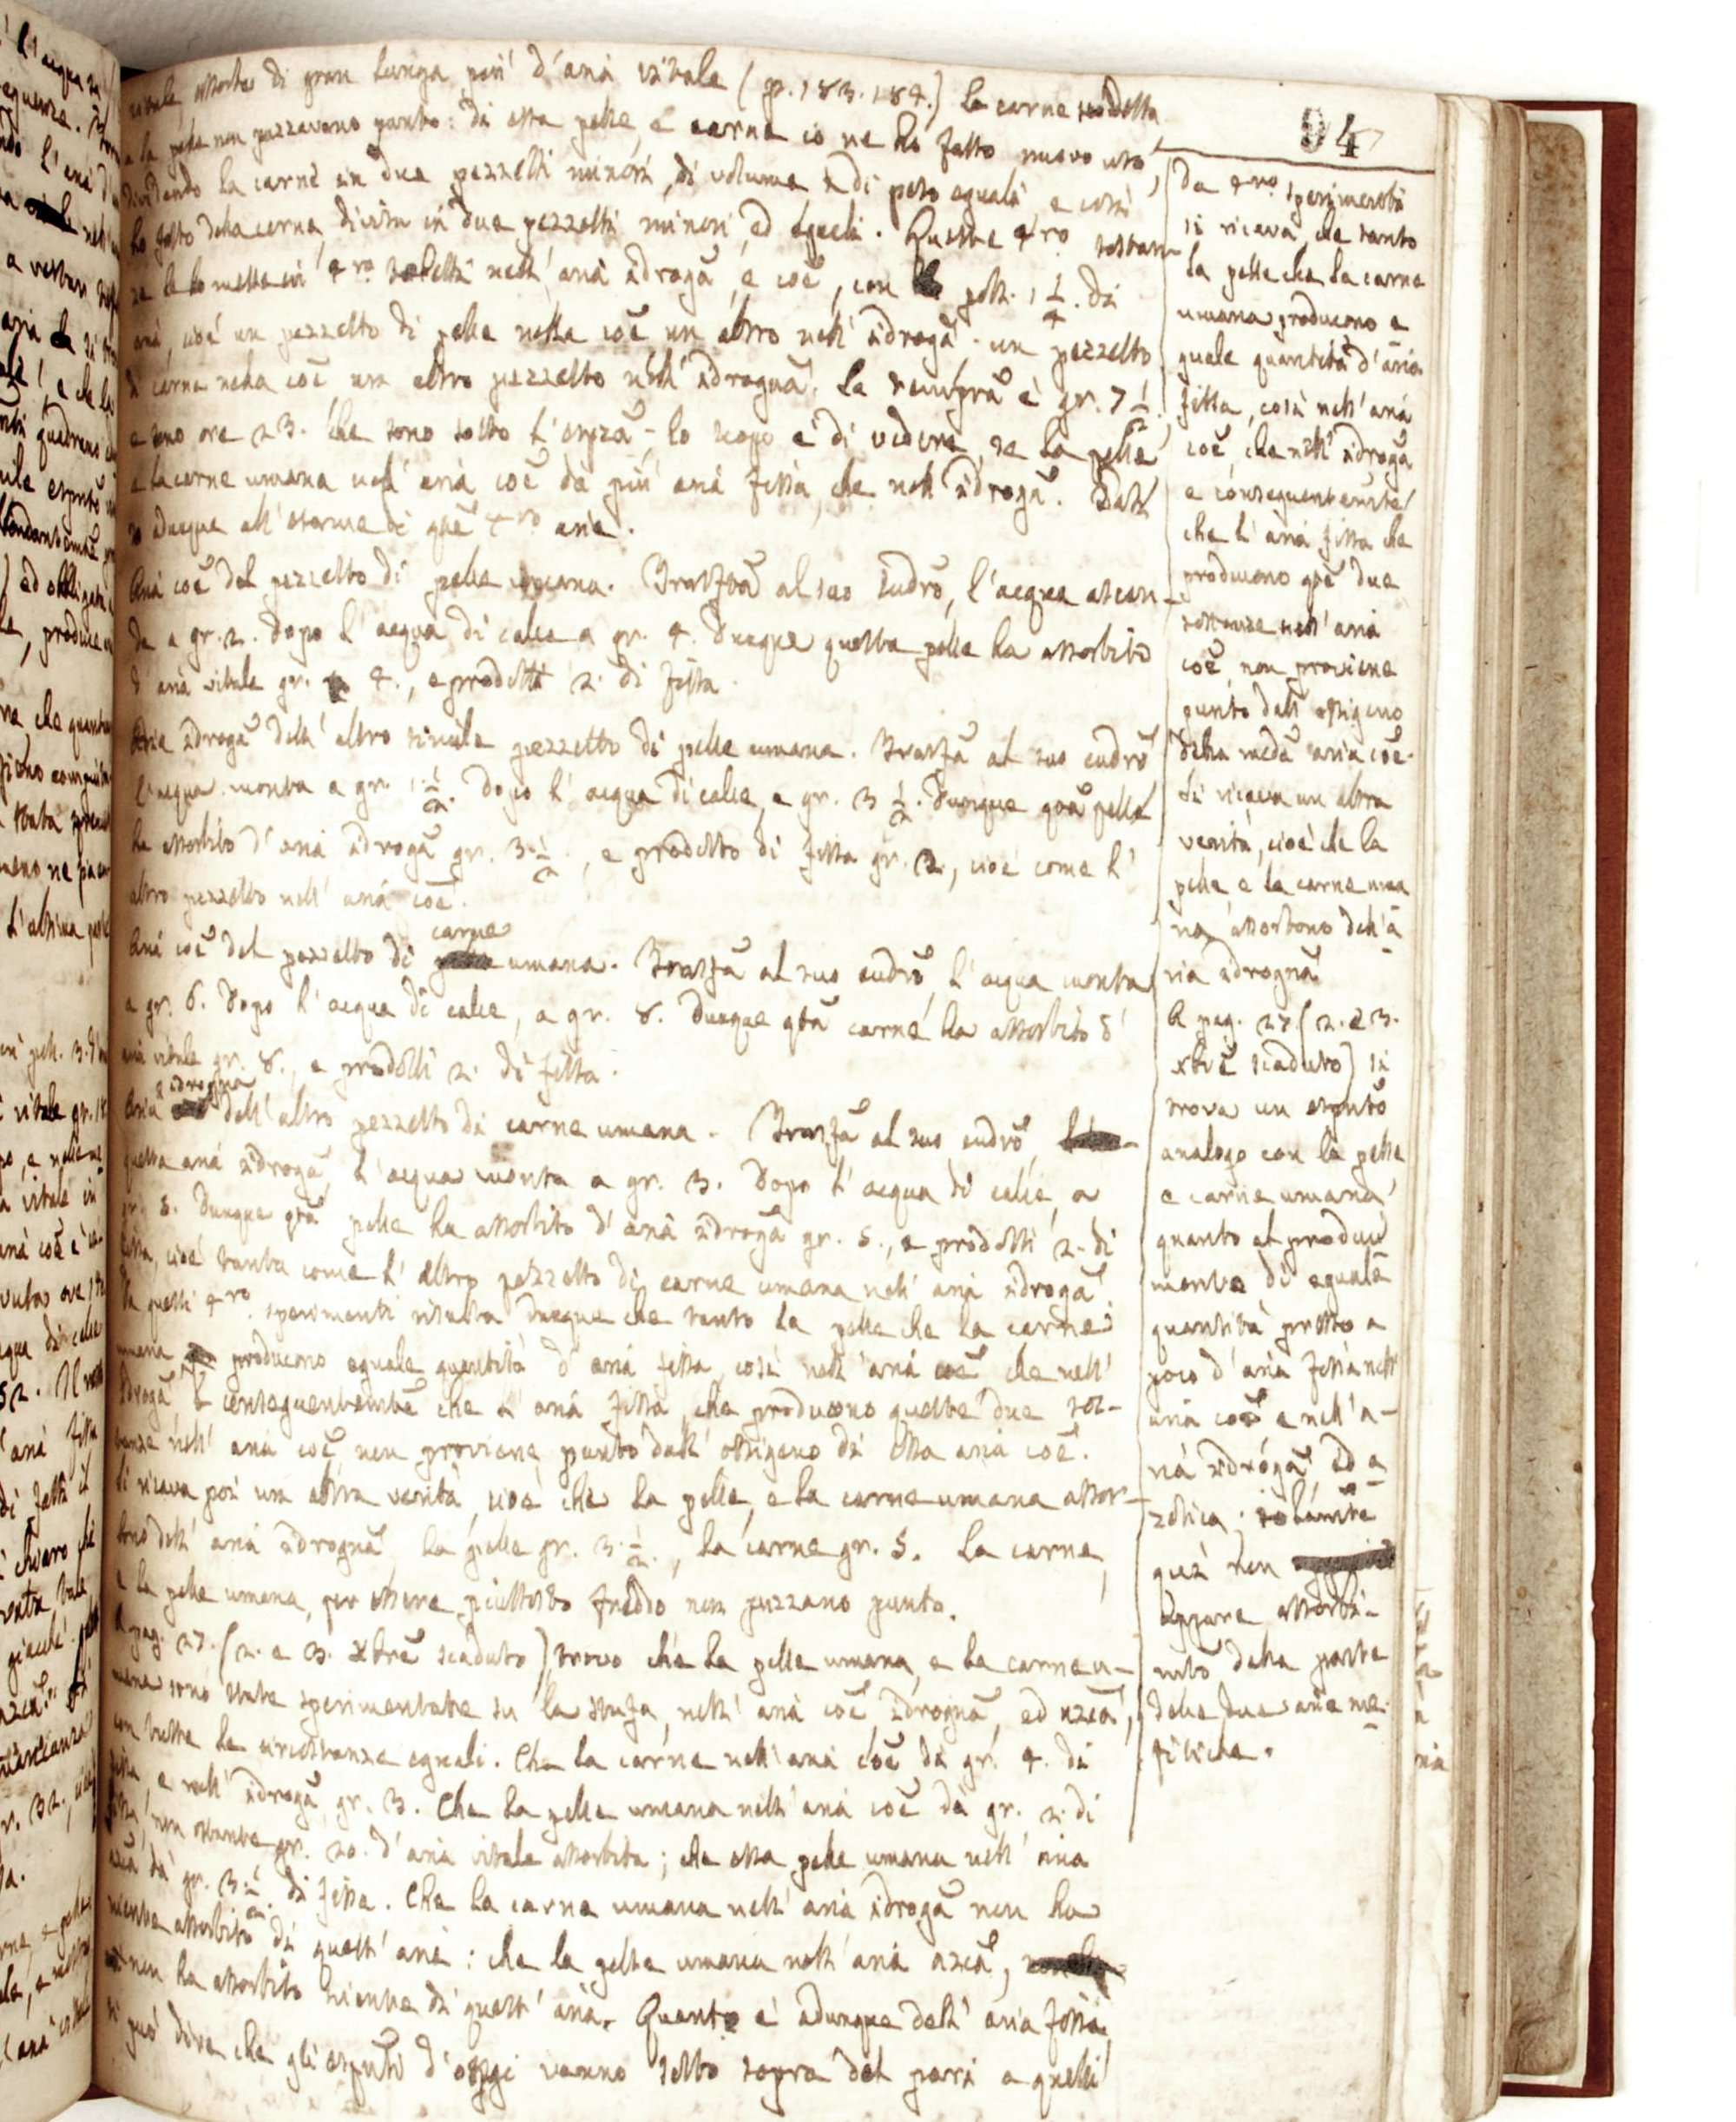 94
vitale assorbe di gran lunga più d'aria vitale (p. 183. 184.) La carne suddetta
e la pelle non puzzavano punto: di essa pelle, e carne io ne ho fatto nuovo uso,
dividendo la carne in due pezzetti minori, di volume e di peso eguali, e così
ho fatto della carne, divisa in due pezzetti minori, ed eguali. Queste 4ro sostan
ze le ho messe in 4ro tubetti nell'aria idroga, e coē, con poll. 1 1/4. di
aria, cioè un pezzetto di pelle nella coē un altro nell'idroga. un pezzetto
di carne nella coē, un altro pezzetto nell'idrogna. La tempra è gr. 7 1/2.
e sono ore 23. che sono sotto l'espza - lo scopo è di vedere, se la pelle
e la carne umana nell'aria coē dà più aria fissa, che nell'idroga.
adunque all'esame di que 4ro arie.
Aria coē del pezzetto di pelle umana. Trasfta al suo eudro, l'acqua ascen-
de a gr. 2. Dopo l'acqua di calce a gr. 4. Dunque questa pelle ha assorbito
d'aria vitale gr. 4., e prodotti 2. di fissa.
Aria idroga dell'altro simile pezzetto di pelle umana. Trasfa al suo eudro
l'acqua monta a gr. 1 1/2. Dopo l'acqua di calce, a gr. 3 1/2. Dunque qta pelle
ha assorbito d'aria idroga gr. 3 1/2., e prodotto di fissa gr. 2., cioè come l'
altro pezzetto nell'aria coē.
Aria coē del pezzetto di carne umana. Trasfa al suo eudro, l'acqua monta
a gr. 6. Dopo l'acqua di calce, a gr. 8. Dunque qta carne ha assorbito d'
aria vitale gr. 8., e prodotti 2. di fissa.
Aria idrogna dell'altro pezzetto di carne umana. Trasfa al suo eudro,
questa aria idroga, l'acqua monta a gr. 3. Dopo l'acqua di calce, a
gr. 5. Dunque qta pelle ha assorbito d'aria idroga gr. 5., e prodotti 2. di
fissa, cioè tanta come l'altro pezzetto di carne umana nell'aria idroga.
Da questi 4ro. sperimenti risulta dunque che tanto la pelle che la carne
umana producono eguale quantità d'aria fissa, così nell'aria coē, che nell'
idroga e conseguentemte che l'aria fissa, che producono queste due sos-
tanze nell'aria coē, non proviene punto dall'ossigeno di essa aria coē.
Si ricava poi un altra verità, cioè che la pelle, e la carne umana assor-
bono dell'aria idrogna, la pelle gr. 3 1/2., la carne gr. 5. La carne,
e la pelle umana, per essere piuttosto freddo non puzzano punto.
A pag. 27. (2. e 3. Xbre scaduto) trovo che la pelle umana, e la carne u-
mana sono state sperimentate su la stufa, nell'aria coē, idrogna, ed azca,
con tutte le circostanze eguali. Che la carne nell'aria coē dà gr. 4. di
fissa, e nell'idroga, gr. 3. Che la pelle umana nell'aria coē dà gr. 2. di
fissa, non ostante gr. 20. d'aria vitale assorbita; che essa pelle umana nell'aria
azca dà gr. 3 1/2. di fissa. Che la carne umana nell'aria idroga non ha
niente assorbito di quest'aria: che la pelle umana nell'aria azca,
non ha assorbito niente di quest'aria. Quanto è adunque dell'aria fissa,
si può dire che gli esputi d'oggi vanno sotto sopra del pari a quelli
Da 4ro sperimenti
si ricava, che tanto
la pelle che la carne
umana producono e
guale quantità d'aria
fissa, così nell'aria
coē, che nell'idroga
e conseguentemte
che l'aria fissa che
producono qte due
sostanze nell'aria
coē, non proviene
punto dall'ossigeno
della meda aria coē.
Si ricava un altra
verità, cioè che la
pelle, e la carne uma
na assorbono dell'a-
ria idrogna
A pag. 27 (2. e 3.
Xbre scaduto) si
trova un esputo
analogo con la pelle
e carne umana,
quanto al produci
mento di eguale
quantità presso a
poco d'aria fissa nell'
aria coē e nell'a-
ria idroga, ed a
zotica; solamte
quì non
appare assorbi-
mto della parte
delle due arie me-
fitiche.